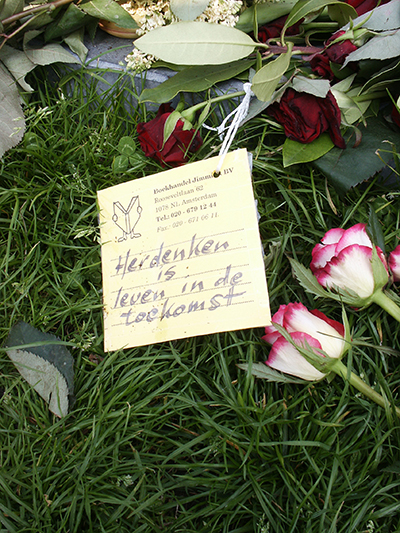 Boekhandel Jimmink BV
Rooseveltlaan 62
1078 NL Amsterdam
Tel.: 020 - 679 12 44
Fax: 020 - 671 06 11
Herdenken
is
leven in de
toekomst